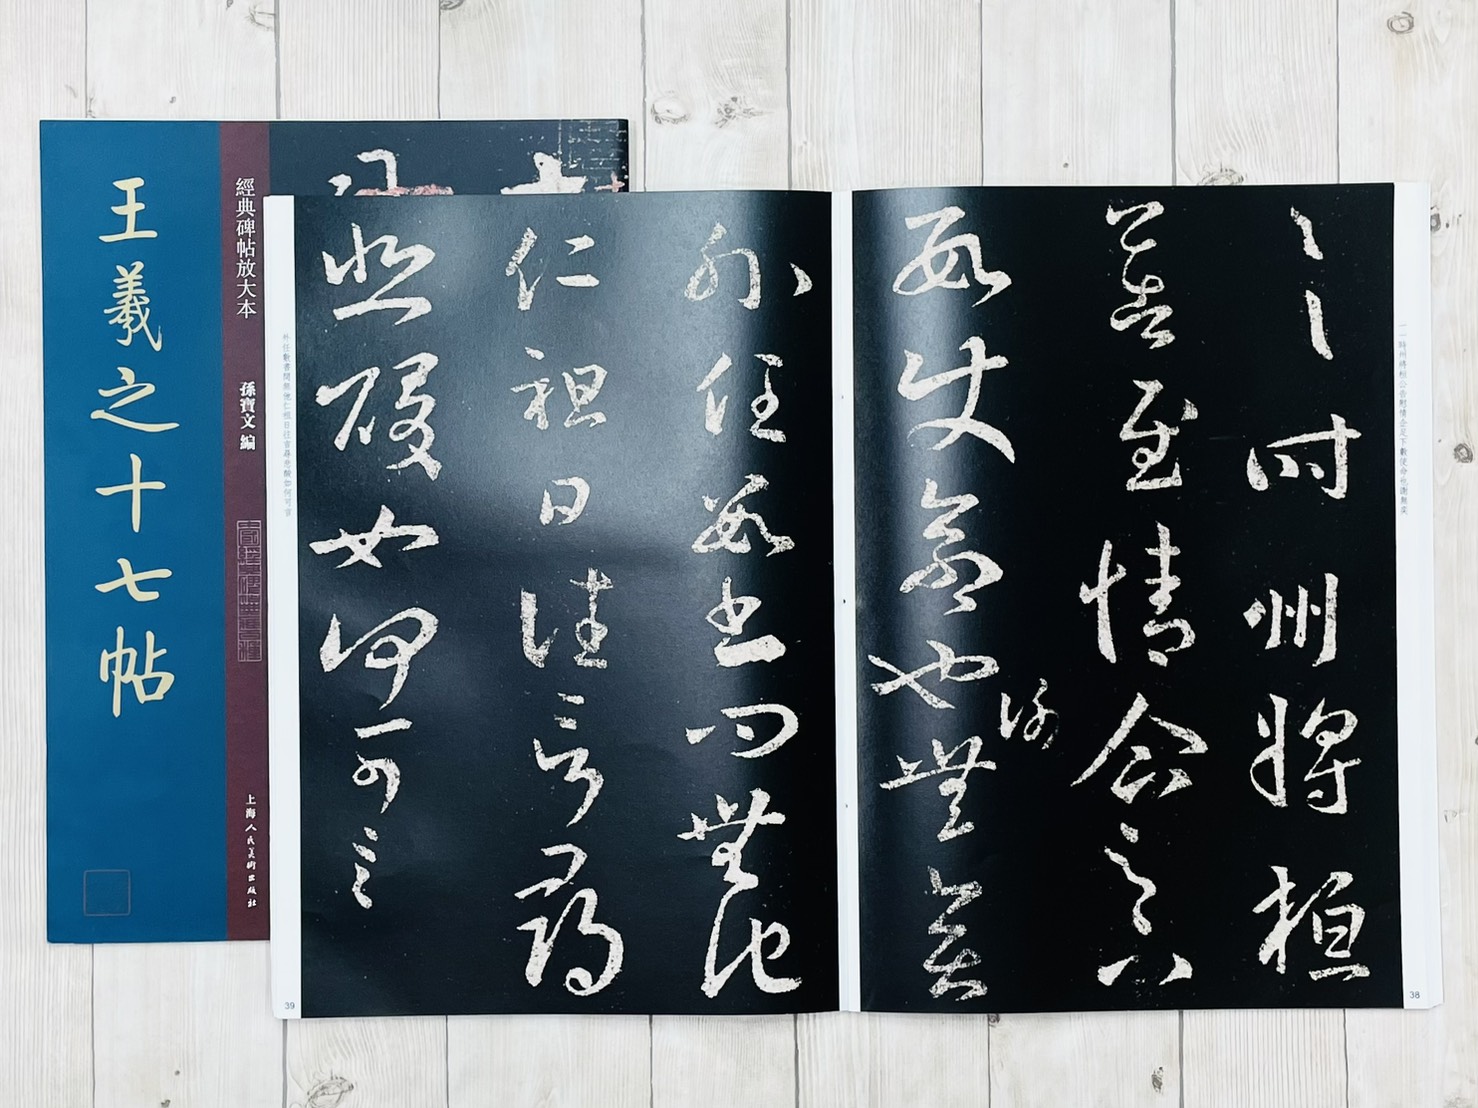 王羲之十七帖
經典碑帖放大本
孫寶文 編
上海人民美術出版社
一一時州將桓公告慰情企足下數使命也謝無奕
一一時州將桓
公告慰情企足下
數使命也謝無奕
38
外任數書問無他
仁祖日往言尋
悲酸如何可言
外任數書問無他仁祖日往言尋悲酸如何可言
39